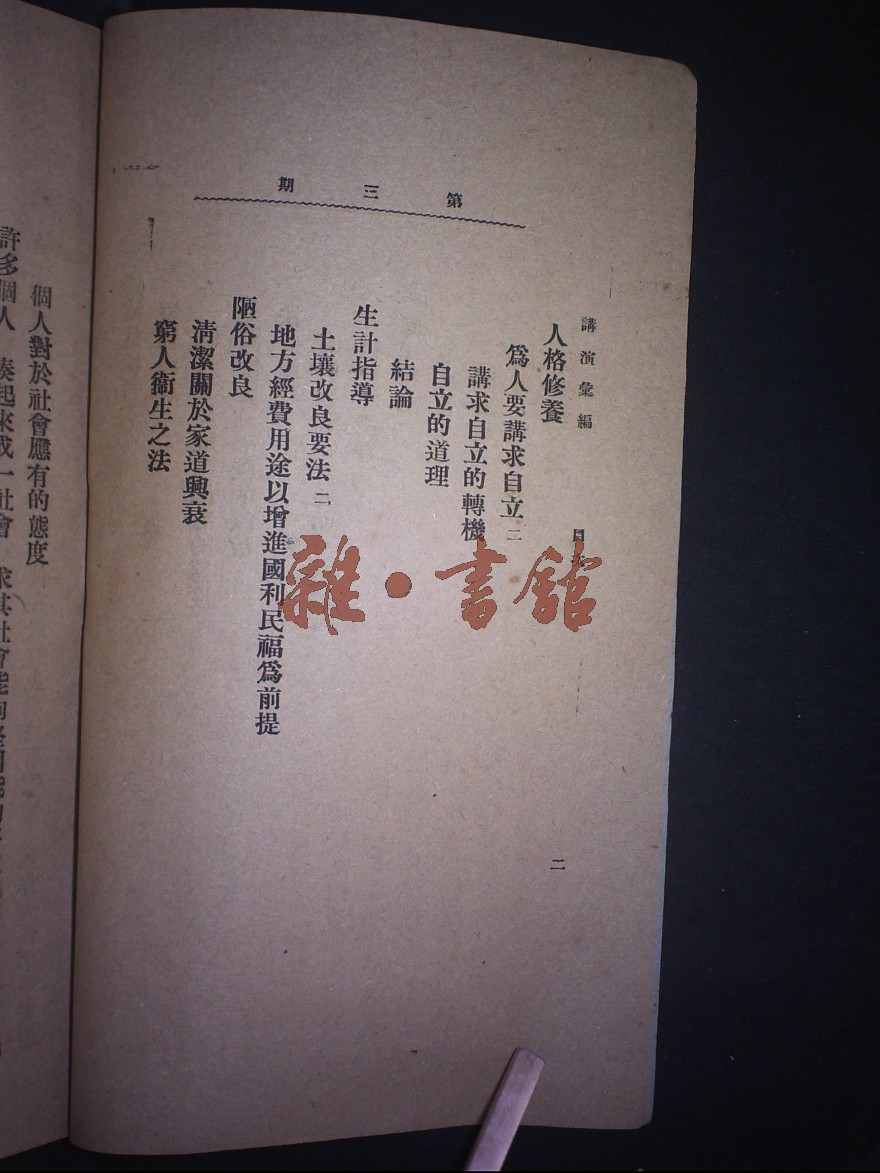 第三期
講演彙編
目次
二
人格修養
爲人要講求自立 二
講求自立的轉機
自立的道理
結論
生計指導
土壤改良要法 二
地方經費用途以增進國利民福爲前提
陋俗改良
清潔關於家道興衰
窮人衞生之法
個人對於社會應有的態度
許多個人 湊起來成一社會 求其社會能夠
雜·書館